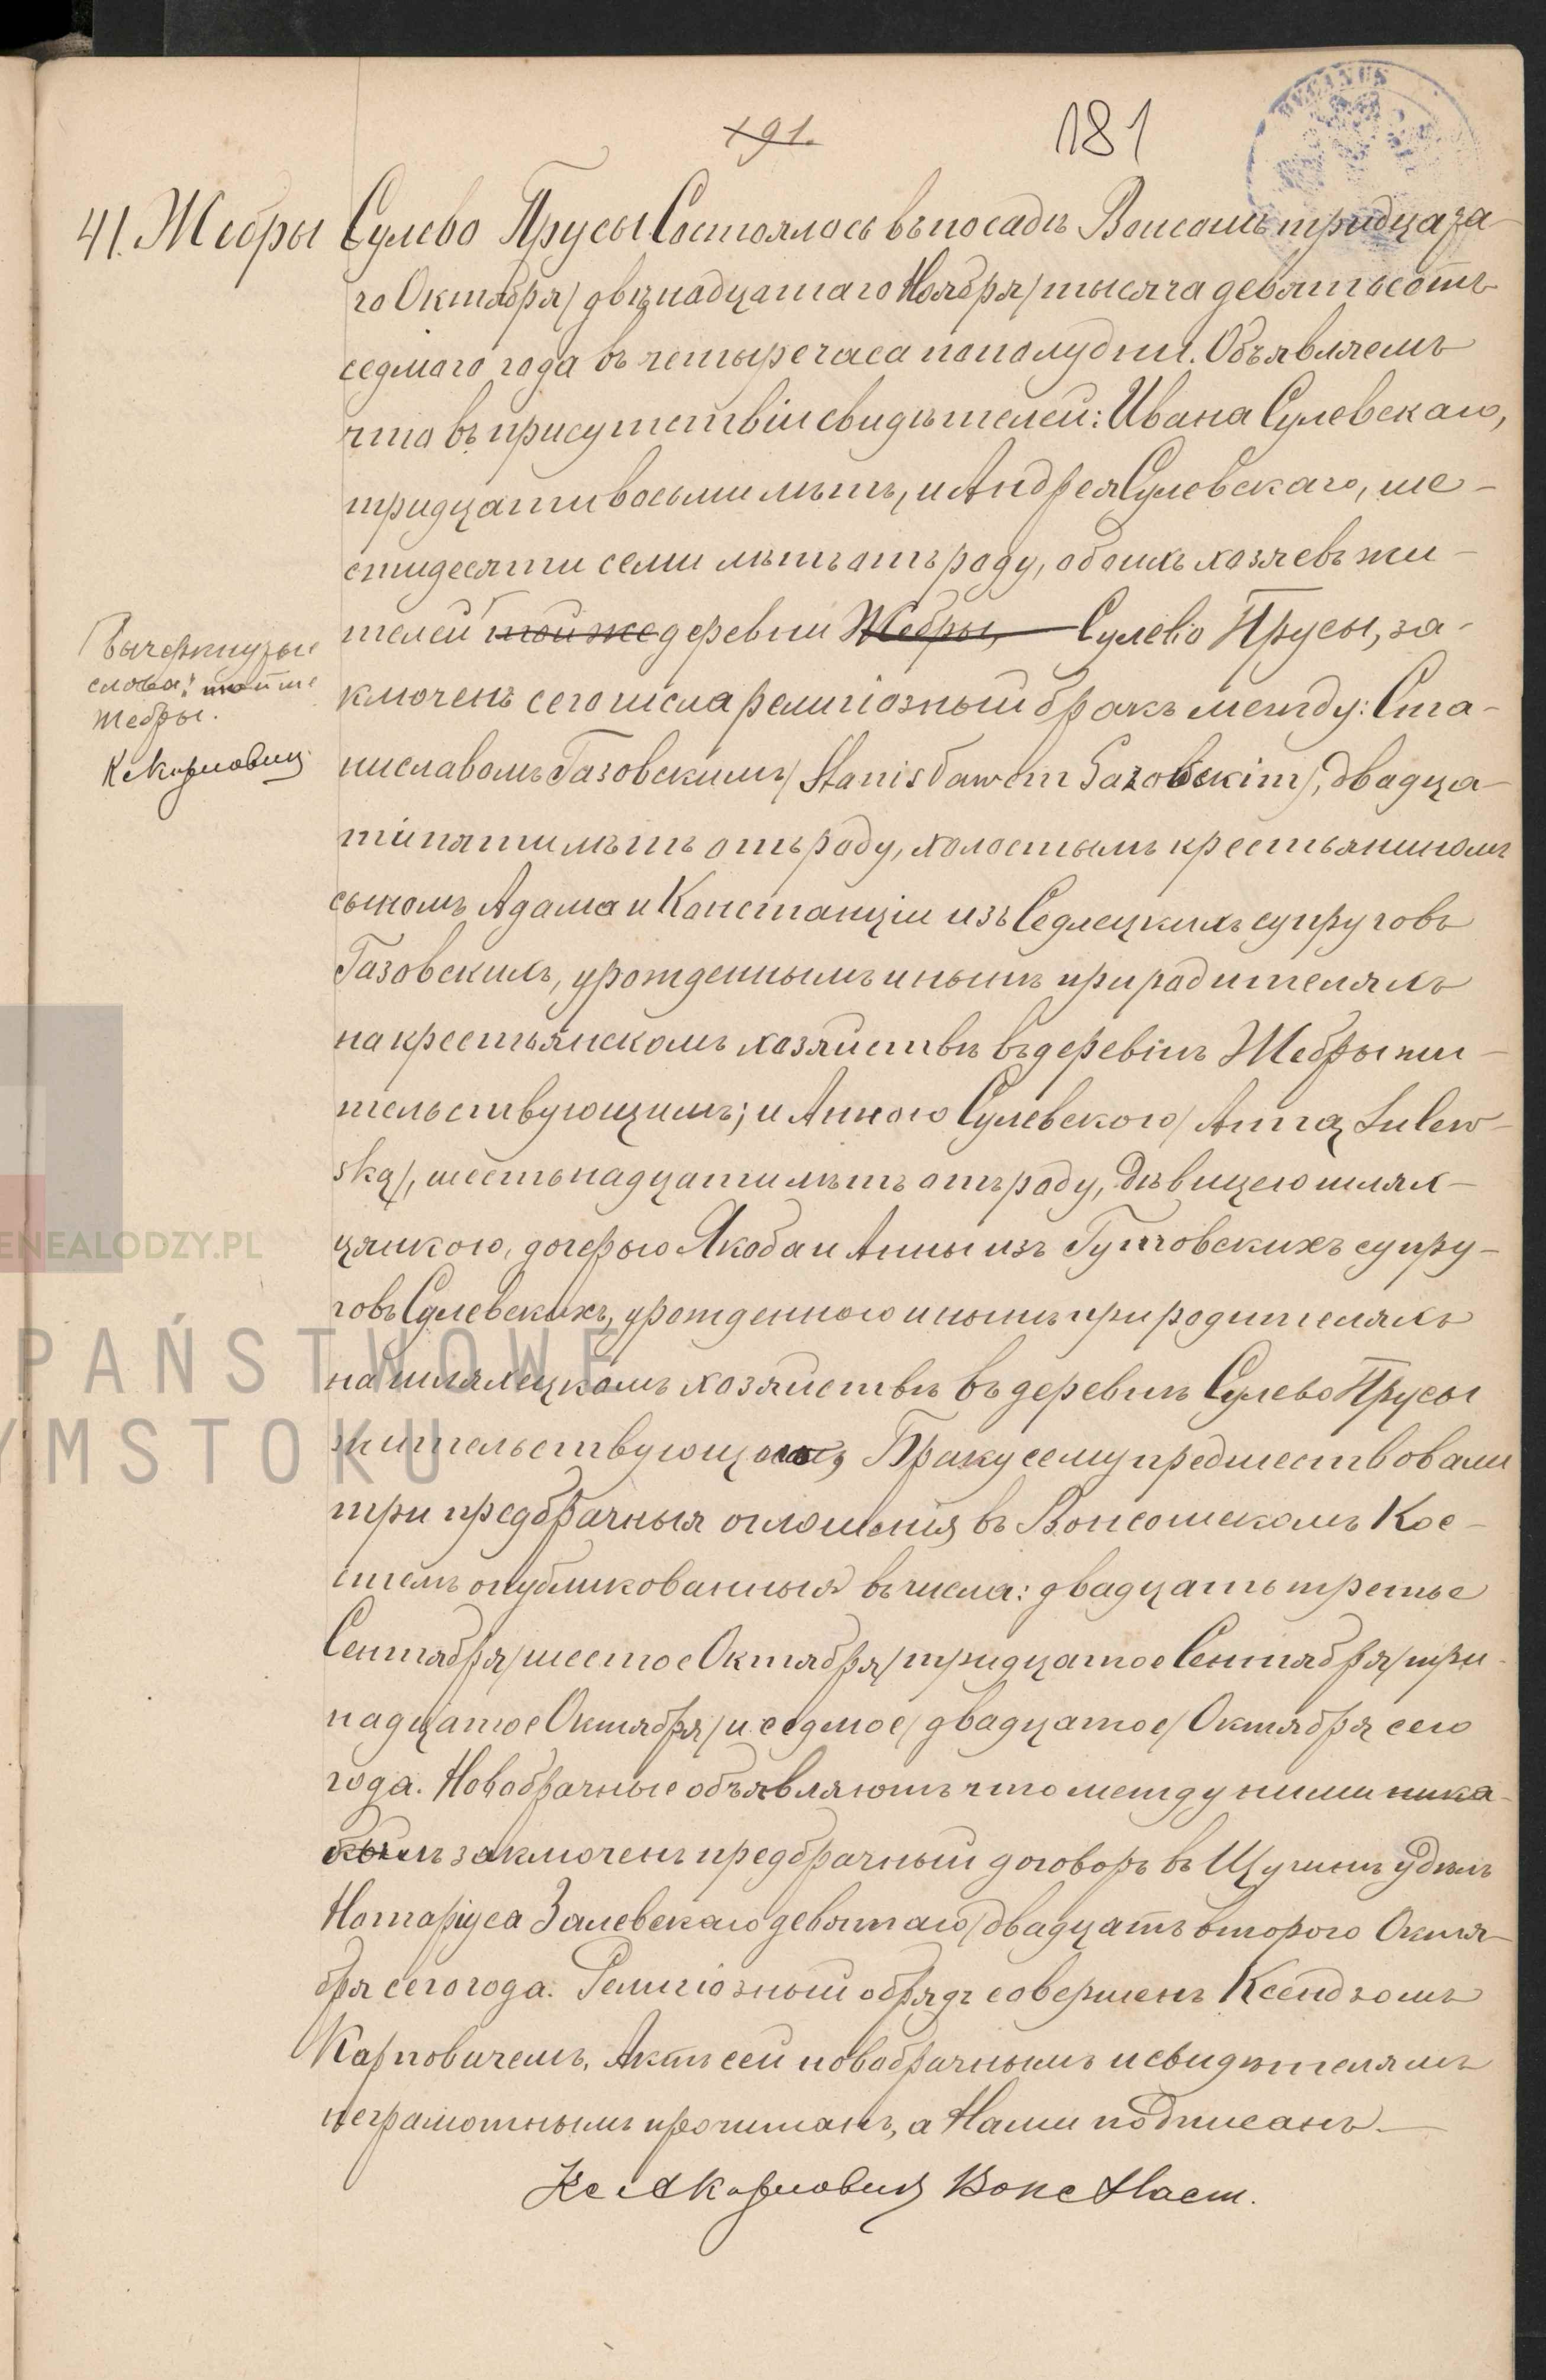 191.
181
DECANUS
41. Жебры Сулево Прусы Состоялось въ посадѣ Вонсошъ тридцаза-
го Октября/двѣнадцатаго Ноября/тысяча девятьсотъ
седмого года въ четыре часа пополудни. Объявляемъ
что въ присутствіи свидѣтелей: Ивана Сулевскаго,
тридцати восьми лѣтъ, и Андрея Сулевскаго, ше-
стидесяти семи лѣтъ отъ роду, обоихъ хозяевъ жи-
телей той же деревни Жебры, Сулево Прусы, за-
ключенъ сего числа религіозный бракъ между: Ста-
ниславомъ Газовскимъ/Stanisławem Gazowskim/, двадца-
ти пяти лѣтъ отъ роду, холостымъ крестьяниномъ
сыномъ Адама и Констанціи изъ Седлецкихъ супруговъ
Газовскихъ, урожденнымъ и нынѣ при родителяхъ
на крестьянскомъ хозяйствѣ въ деревнѣ Жебры жи-
тельствующимъ; и Анною Сулевскою/Anną Sulew-
ską/, шестьнадцати лѣтъ отъ роду, дѣвицею шлях-
цянкою, дочерью Якоба и Анны изъ Гутовскихъ супру-
говъ Сулевскихъ, урожденною и нынѣ при родителяхъ
на шляхецкомъ хозяйствѣ въ деревнѣ Сулево Прусы
жительствующею, Браку сему предшествовали
три предбрачныя оглошенія въ Вонсошскомъ Кос-
телѣ опубликованныя въ числа: двадцать третье
Сентября/шестое Октября/тридцатое Сентября/три-
надцатое Октября/и седмое/двадцатое/Октября сего
года. Новобрачные объявляютъ что между ними ника-
кимъ заключенъ предбрачный договоръ въ Щучинѣ у дѣлъ
Нотаріуса Залевскаго девятаго/двадцать второго Октя-
бря сего года. Религіозный обрядъ совершенъ Ксендзомъ
Карповичемъ. Актъ сей новобрачнымъ и свидѣтелямъ
неграмотнымъ прочитанъ, а Нами подписанъ.
Кс А Карповичъ Вонс Наст.
Вычеркнутые
слова: той же
Жебры.
К Карповичъ
GENEALODZY.PL
PAŃSTWOWE
YMSTOKU